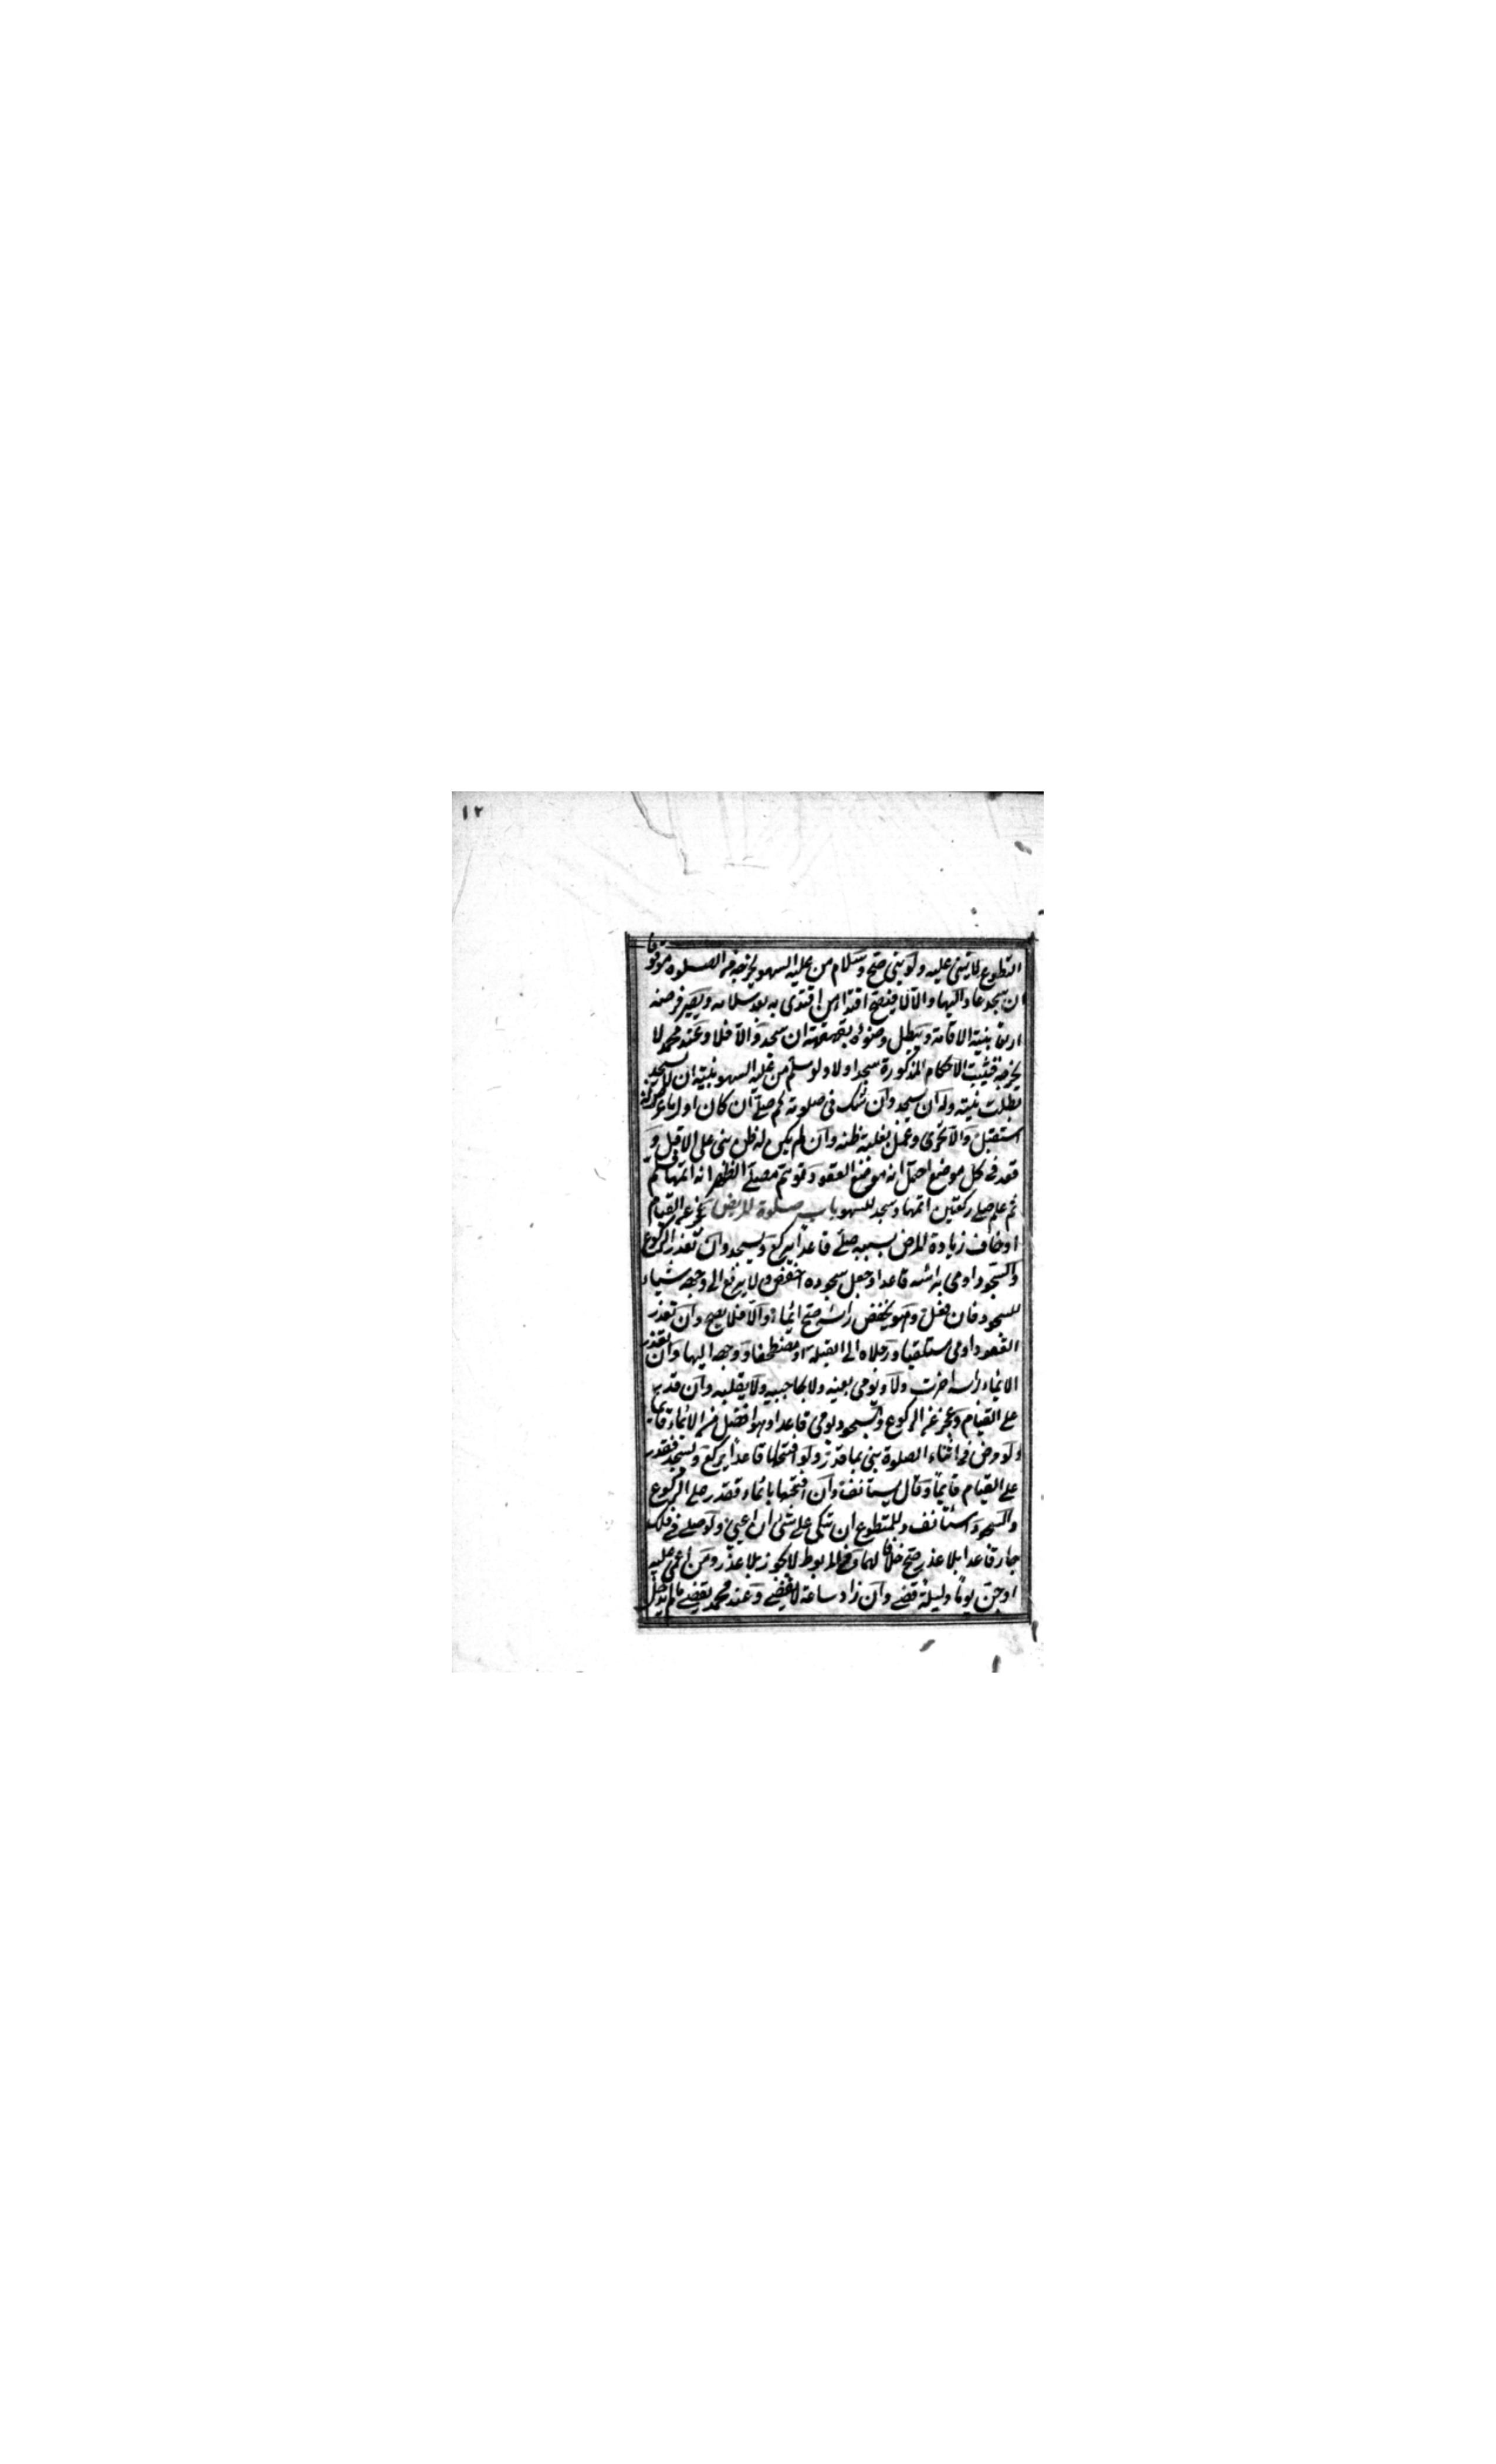 ١٢
التطوع لا يبني عليه ولو بنى صح وسلام من عليه السهو يخرجه من الصلوة موقوفا
ان سجد عاد اليها والا لا فيصح اقتدا من اقتدى به بعد سلامه ويصير فرضه
اربعا بنية الاقامة ويبطل وضوئه بقهقهة ان سجد والا فلا وعند محمد لا
يخرجه فيثبت الاحكام المذكورة سجد اولا ولو سلم من عليه السهو بنية ان لا يسجد
بطلت نيته وله ان يسجد وان شك في صلوته كم صلى ان كان اول ما عرض له
استقبل والا تحرى وعمل بغلبة ظنه وان لم يكن له ظن بنى على الاقل و
قعد في كل موضع احتمل انه موضع القعود توهم مصلي الظهر انه اتمها فسلم
ثم علم صلى ركعتين اتمها وسجد للسهو باب صلوة المريض عجز عن القيام
او خاف زيادة المرض بسببه صلى قاعدا يركع ويسجد وان تعذر الركوع
والسجود اومى برأسه قاعدا وجعل سجوده اخفض ولا يرفع الى وجهه شيئا
للسجود فان فعل وهو يخفض رأسه صح ايماء والا فلا يصح وان تعذر
القعود اومى مستلقيا ورجلاه الى القبلة او مضطجعا ووجهه اليها وان تعذر
الايماء برأسه اخرت ولا يومى بعينه ولا بحاجبيه ولا بقلبه وان قدر
على القيام وعجز عن الركوع والسجود يومى قاعدا وهو افضل من الايماء قائما
ولو مرض في اثناء الصلوة بنى بما قدر ولو افتتحها قاعدا يركع ويسجد فقدر
على القيام قايما وقال يستأنف وان افتتحها بايماء فقدر على الركوع
والسجود استأنف وللمتطوع ان يتكى على شئ ان اعيى ولو صلى في فلك
جار قاعدا بلا عذر صح خلافا لهما وفي المربوط لا يجوز بلا عذر ومن اغمى عليه
او جن يوما وليلة قضى وان زاد ساعة لا يقضي وعند محمد يقضي ما لم يدخل